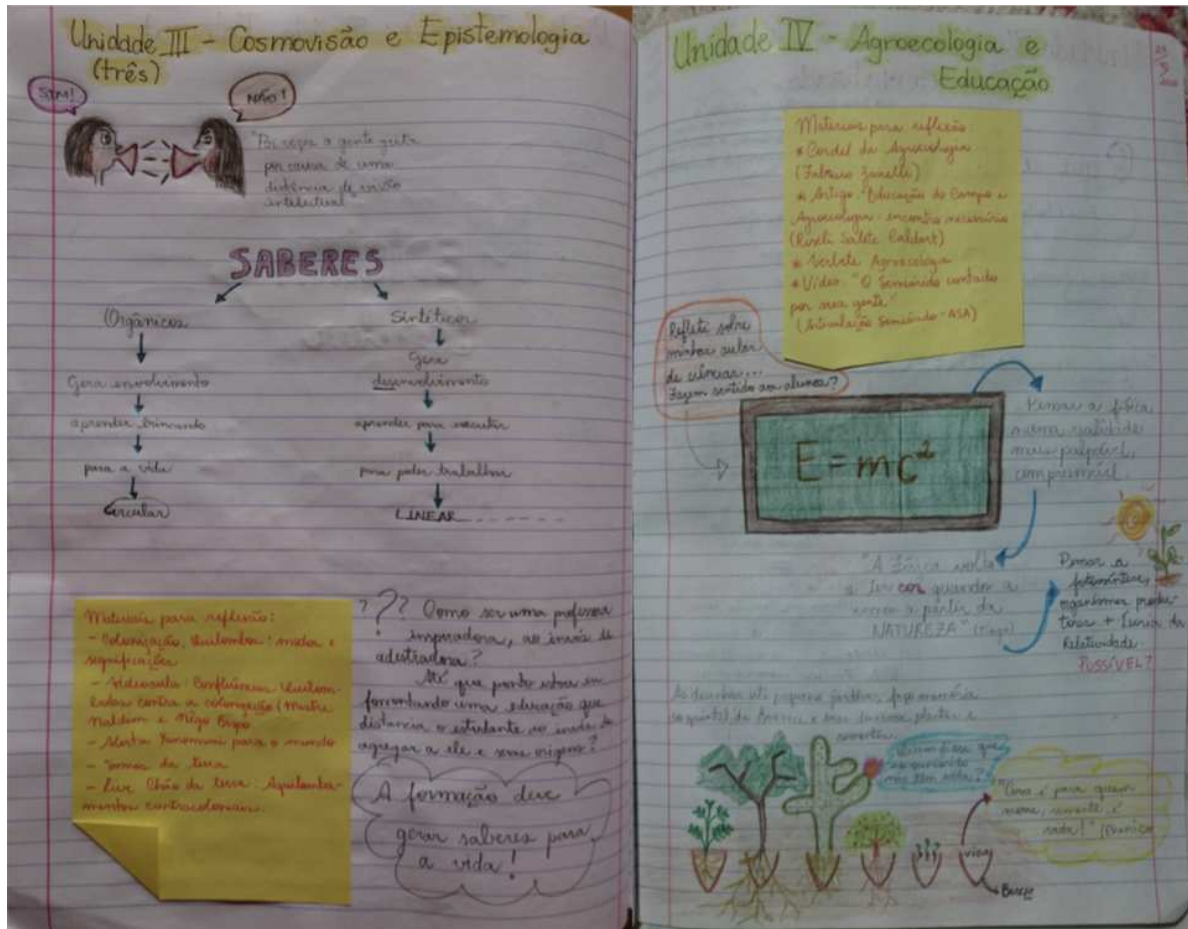 Unidade III - Cosmovisão e Epistemologia
(três)
SIM!
NÃO!
a gente grita
por causa de uma
distância de visão
intelectual"
SABERES
Orgânicos
Gera envolvimento
aprender brincando
para a vida
Circular
Sintéticos
Gera
desenvolvimento
aprender para executar
para poder trabalhar
LINEAR
Materiais para reflexão:
- Colonização, Quilombos: modos e
significações
- Videoaula: Confluências Quilom-
bolas contra a colonização (Mestre
Naldim e Nêgo Bispo
- Alerta Yanomami para o mundo
- Somos da terra
- Live Chão da terra: Aquilomba-
mentos contracoloniais.
??? Como ser uma professora
inspiradora, ao invés de
adestradora?
Até que ponto estou eu
fomentando uma educação que
distancia o estudante ao invés de
agregar a ele e suas origens?
A formação deve
gerar saberes para
a vida!
Unidade IV - Agroecologia e
Educação
Materiais para reflexão:
* Cordel da Agroecologia
* Artigo: "Educação do Campo e
Agroecologia: encontro necessário
(Roseli Salete Caldart)
* Verbete Agroecologia
* Vídeo: "O Semiárido contado
por sua gente"
(Articulação Semiárido - ASA)
Refleti sobre
minhas aulas
de ciências...
Fazem sentido aos alunos?
E = mc²
Pensar a física
numa realidade
mais palpável,
compreensível.
"A Física volta
a ter cor quando a
vemos a partir da
NATUREZA"
Pensar a
fotossíntese,
organismos produ-
tores + Teoria da
Relatividade.
POSSÍVEL?
Ao desenhar até pequeno jardim, faço memória
ao quintal de e suas plantas e
sementes.
Quem disse que
no semiárido
não tem vida?
"Cova é para quem
morre, semente é
vida!"
???
VIDA
Berço